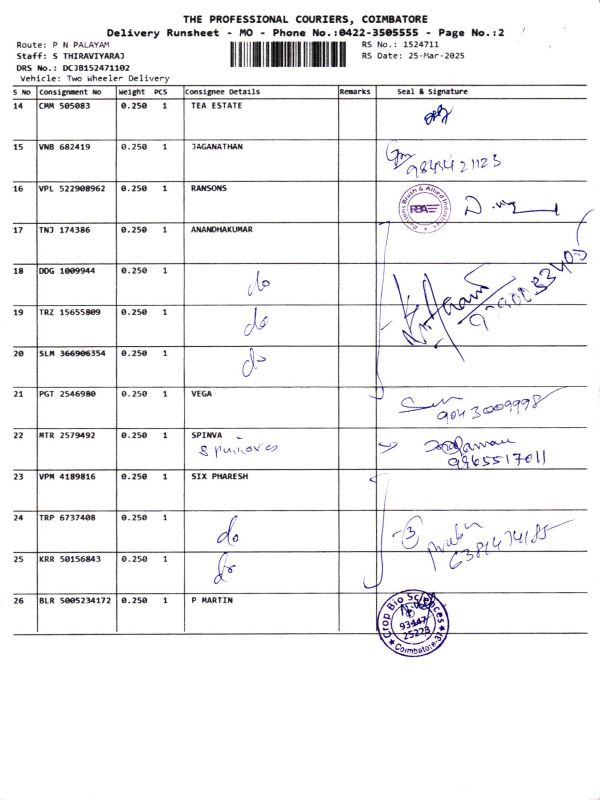 THE PROFESSIONAL COURIERS, COIMBATORE
Delivery Runsheet - MO - Phone No.:0422-3505555 - Page No.:2
Route: P N PALAYAM RS No.: 1524711
Staff: S THIRAVIYARAJ RS Date: 25-Mar-2025
DRS No.: DCJB152471102
Vehicle: Two Wheeler Delivery
S No Consignment No Weight PCS Consignee Details Remarks Seal & Signature
14 CMM 505083 0.250 1 TEA ESTATE
15 VNB 682419 0.250 1 JAGANATHAN
9843421123
16 VPL 522908962 0.250 1 RANSONS
Ransons Brush & Allied Industries
RBA
17 TNJ 174386 0.250 1 ANANDHAKUMAR
18 DDG 1009944 0.250 1 do
19 TRZ 15655809 0.250 1 do
20 SLM 366906354 0.250 1 do
21 PGT 2546980 0.250 1 VEGA
9043009998
22 MTR 2579492 0.250 1 SPINVA
9965517011
23 VPM 4189816 0.250 1 SIX PHARESH
24 TRP 6737408 0.250 1 do
3
25 KRR 50156843 0.250 1 do
26 BLR 5005234172 0.250 1 P MARTIN
Crop Bio Sciences
93447
25223
Coimbatore-37